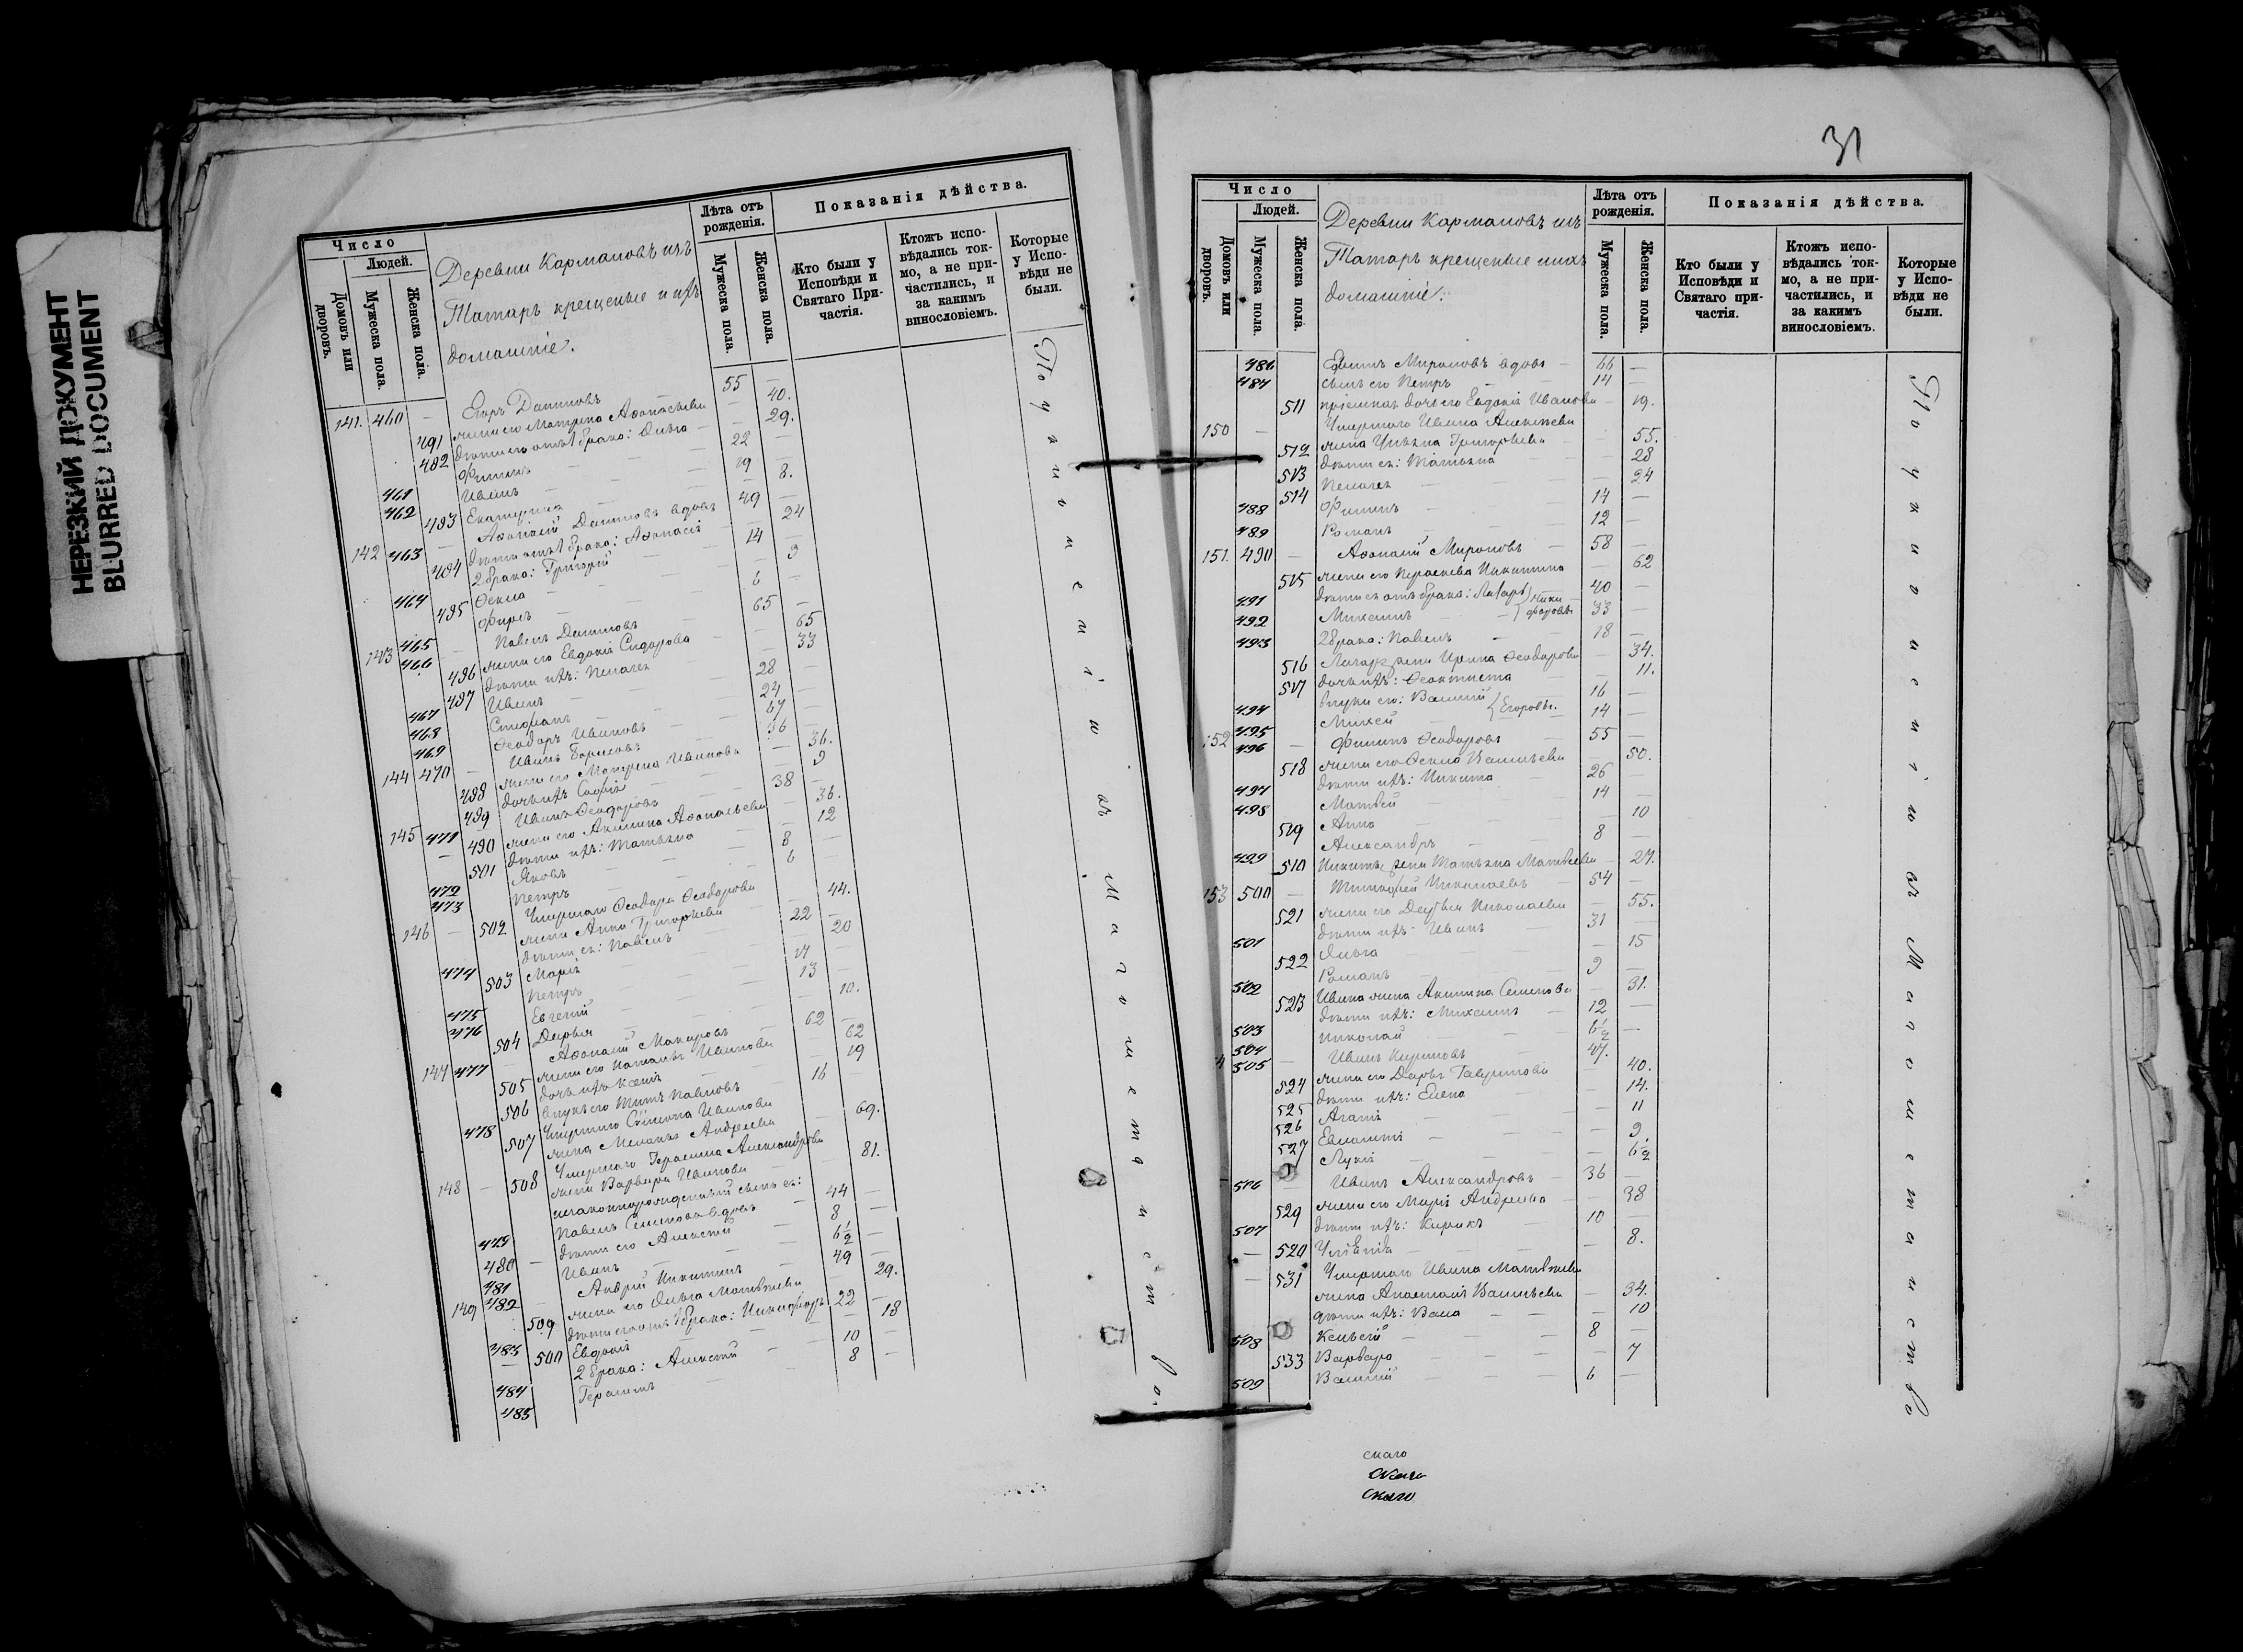 НЕРЕЗКИЙ ДОКУМЕНТ
BLURRED DOCUMENT
Число
Людей.
Домовъ или дворовъ.
Мужеска пола.
Женска пола.
Деревни Кармановъ изъ
Татаръ крещеные и ихъ
домашніе.
Лѣта отъ рожденія.
Мужеска пола.
Женска пола.
Показанія дѣйства.
Кто были у Исповѣди и Святаго Причастія.
Ктожъ исповѣдались токмо, а не причастились, и за какимъ винословіемъ.
Которые у Исповѣди не были.
141. 460 — Егоръ Даниловъ — 55 —
491 жена его Матрена Аѳонасьева — 40.
492 дѣти его отъ 1 брака: Ольга — 29.
461 Филиппъ 22 —
462 Иванъ 19 —
493 Екатерина — 8.
142 463 — Аѳонасій Даниловъ вдовъ 49 —
494 дѣти отъ 1 брака: Аѳонасія — 24
464 2 брака: Григорій 14 —
495 Ѳекла — 9
465 Фирсъ 6 —
143 466 — Павелъ Даниловъ 65 —
496 жена его Евдокія Сидорова — 65
497 дѣти ихъ: Пелагея — 33
467 Иванъ 28 —
468 Стефанъ 24 —
469 Ѳеодоръ Ивановъ 67 —
144 470 — Иванъ Борисовъ 36 —
498 жена его Матрена Иванова — 36.
499 дочь ихъ Софія — 9
145 471 Иванъ Ѳеодоровъ 38 —
490 жена его Акилина Аѳонасьева — 36.
501 дѣти ихъ: Татьяна — 12
472 Яковъ 8 —
473 Петръ 6 —
146 — Умершаго Ѳеодора Ѳеодорова
502 жена Анна Григорьева — 44.
474 дѣти ея: Павелъ 22 —
503 Марія — 20
475 Петръ 17 —
476 Евгеній 13 —
504 Дарья — 10.
147 477 Аѳонасій Макаровъ 62 —
505 жена его Наталья Иванова — 62
506 дочь ихъ Ксенія — 19
478 внукъ его Титъ Павловъ 16 —
Умершаго Симеона Иванова
507 жена Меланья Андреева — 69.
148 — Умершаго Герасима Александрова
508 жена Варвара Иванова — 81.
незаконнорожденный сынъ ея:
479 Павелъ Семеновъ вдовъ 44 —
480 дѣти его Алексѣй 8 —
481 Иванъ 6½ —
149 482 Андрей Никитинъ 49 —
509 жена его Ольга Матвѣева — 29.
483 дѣти его отъ 1 брака: Никифоръ 22 —
500 Евдокія — 18
484 2 брака: Алексѣй 10 —
485 Герасимъ 8 —
По уклоненію въ Магометанство.
31
Число
Людей.
Домовъ или дворовъ.
Мужеска пола.
Женска пола.
Деревни Кармановъ изъ
Татаръ крещеные и ихъ
домашніе.
Лѣта отъ рожденія.
Мужеска пола.
Женска пола.
Показанія дѣйства.
Кто были у Исповѣди и Святаго причастія.
Ктожъ исповѣдались токмо, а не причастились, и за какимъ винословіемъ.
Которые у Исповѣди не были.
486 Мироновъ вдовъ 66 —
487 сынъ его Петръ 14 —
511 пріемная дочь его Евдокія Иванова — 19.
150 — Умершаго Ивана Алексѣева
512 жена Ульяна Григорьева — 55.
513 дѣти ея: Татьяна — 28
514 Пелагея — 24
488 Филиппъ 14 —
489 Романъ 12 —
151. 490 — Аѳонасій Мироновъ 58 —
515 жена его Параскева Никитина — 62
491 дѣти ея отъ 1 брака: Лазарь } Ники- 40 —
492 Михаилъ } форовы 33 —
493 2 брака: Павелъ 18 —
516 Лазаря жена Ирина Ѳеодорова — 34.
517 дочь ихъ: Ѳеоктиста — 11.
494 внуки его: Василій { Егоровы. 16 —
495 Михей 14 —
152 496 — Филиппъ Ѳеодоровъ 55 —
518 жена его Ѳекла Васильева — 50.
497 дѣти ихъ: Никита 26 —
498 Матвей 14 —
519 Анна — 10
499 Александръ 8 —
510 Никиты жена Татьяна Матвеева — 27.
153 500 — Тимофей Николаевъ 54 —
521 жена его Дарья Николаева — 55.
501 дѣти ихъ: Иванъ 31 —
522 Ольга — 15
502 Романъ 9 —
523 Ивана жена Акилина Семенова — 31.
503 дѣти ихъ: Михаилъ 12 —
504 Николай 6½ —
505 — Иванъ Кириловъ 47. —
524 жена его Дарья Гаврилова — 40.
525 дѣти ихъ: Елена — 14.
526 Агапія — 11
527 Евлампія — 9
Лукія — 6½
506 — Иванъ Александровъ 36 —
529 жена его Марія Андреева — 38
507 дѣти ихъ: Кирикъ 10 —
520 Улитта — 8.
Умершаго Ивана Матвѣева
531 жена Анастасія Васильева — 34.
дѣти ихъ: Васса — 10
508 8 —
533 Варвара — 7
509 Василій 6 —
По уклоненію въ Магометанство
скаго
скаго
скаго